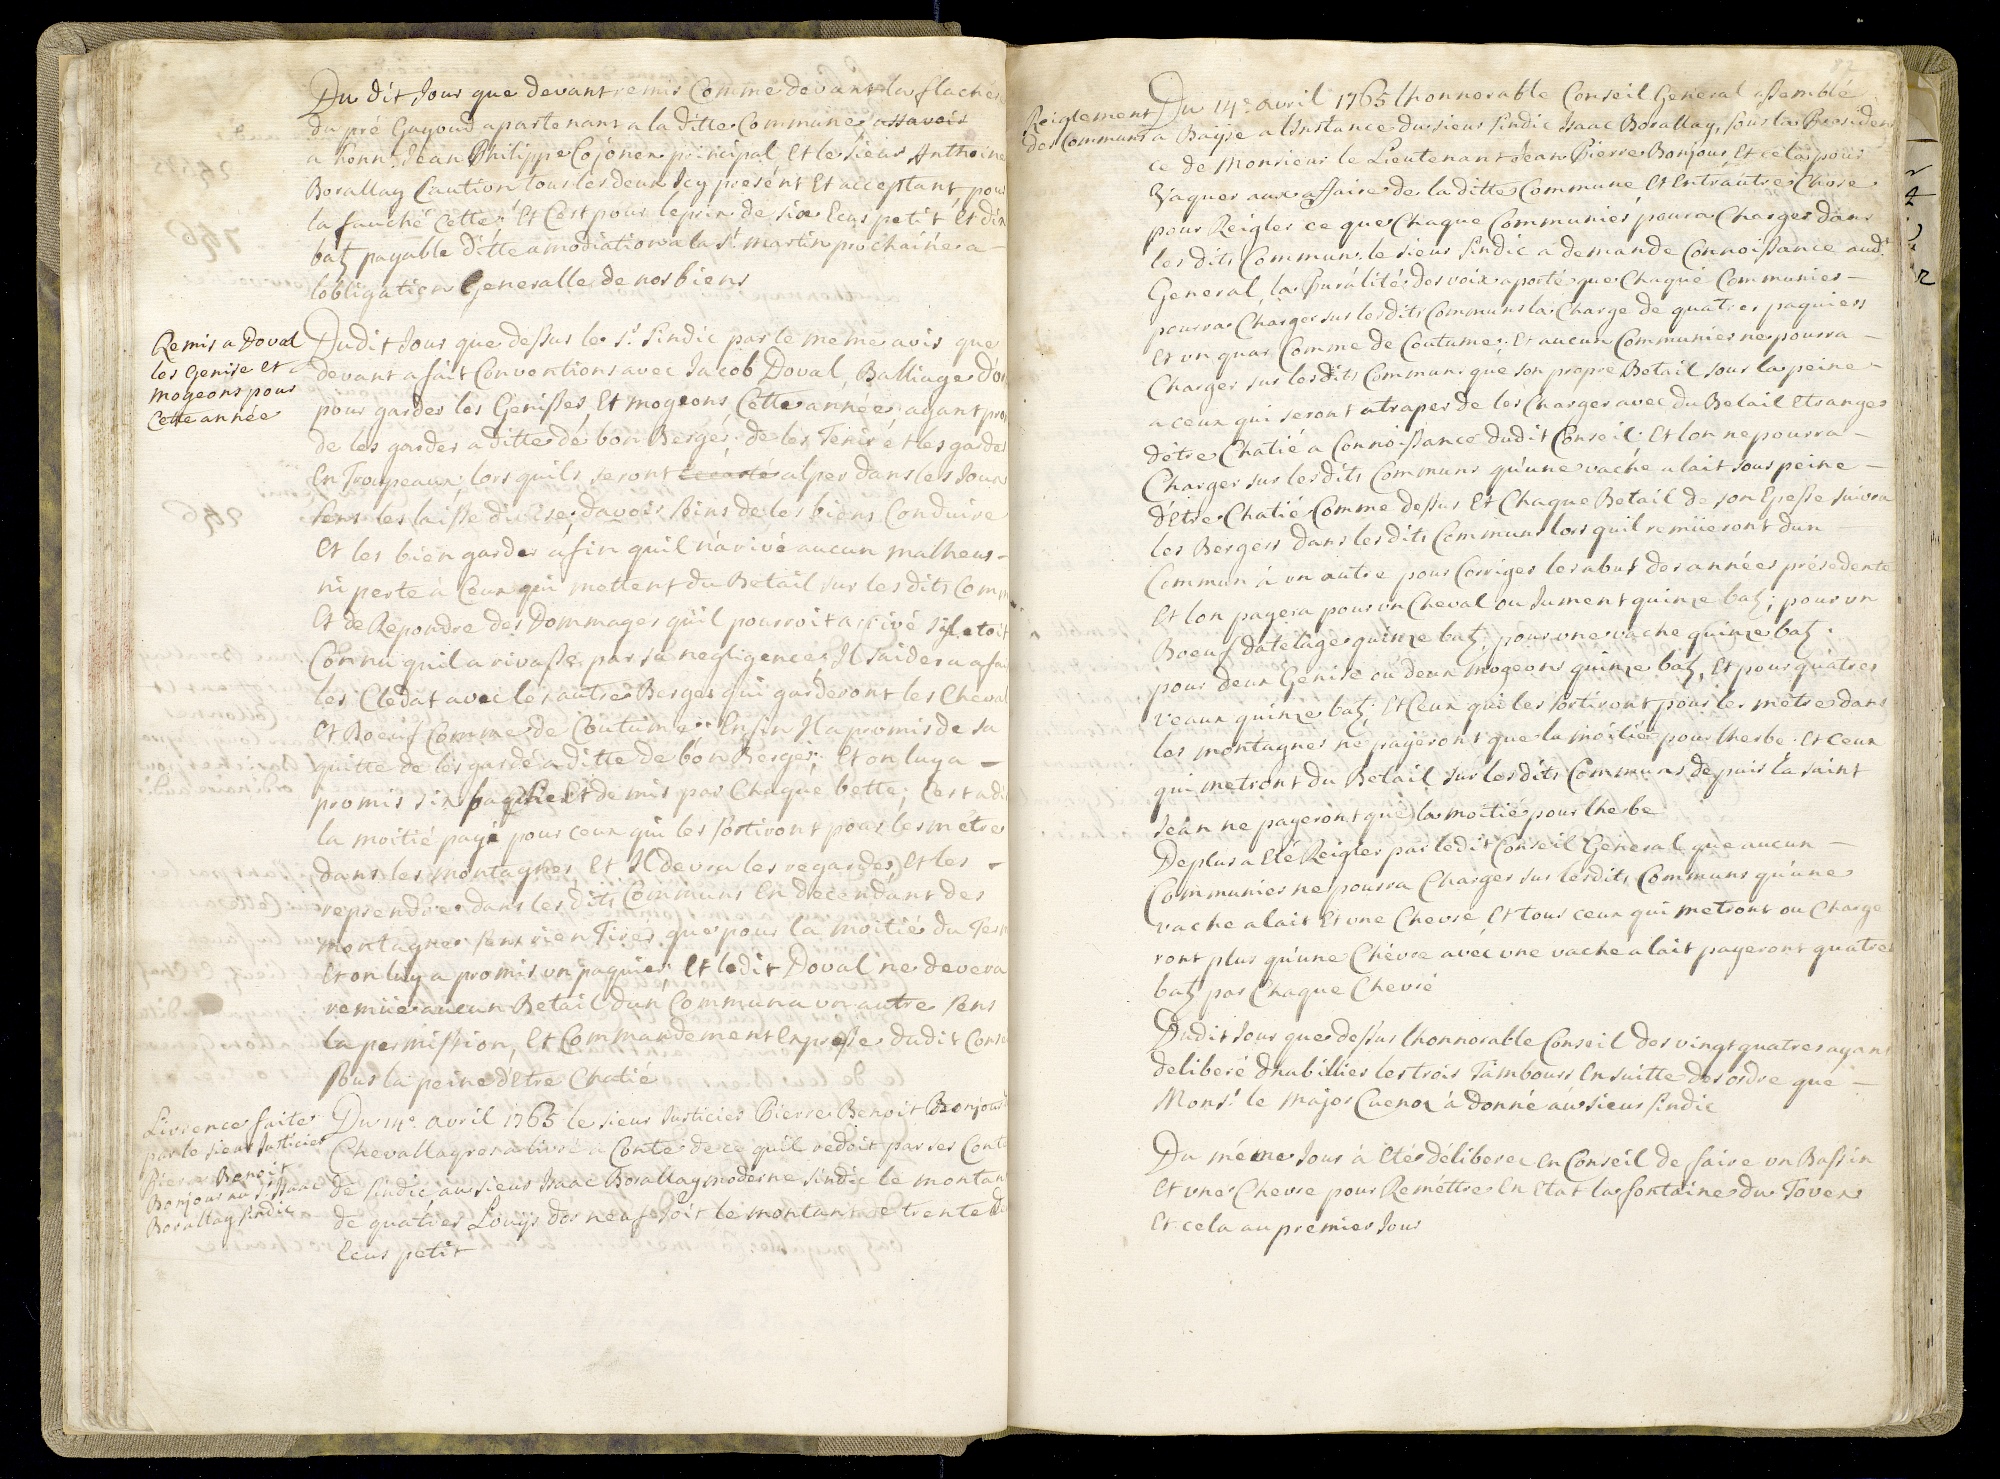 Du dit Jour que devant remis Comme devant la flachere
du pré Guyoud apartenant a la ditte Commune assavoir
a honn. Jean Philippe Cojonex principal Et le sieur Anthoine
Borallay Caution tous les deux Icy present Et acceptant pour
la fauché Cette Et C'est pour le prix de six Ecus petit Et dix
batz payable ditte amodiation a la St. Martin prochaine a
lobligation Generalle de nos biens
Remis a Doval
les Genise Et
mogeons pour
Cette année
Dudit Jour que dessus le Sr. Sindic par le même avis que
devant a fait Conventions avec Jacob Doval, Balliage d'or
pour garder les Genisses Et mogeons Cette année ayant pro
de les garder a ditte de bon Bergé: de les Tenir é t les garder
En Troupeaux, lors quils seront alper dans les Joux
sens les laisse divise, davoir soins de les biens Conduire
Et les bien garder afin quil n'arivé aucun malheur
ni perte à Ceux qui mettent du Betail sur les dits Comm
Et de Repondre des Dommages qu'il pourroit arrivé s'il etoit
Connu quil arivasse par sa negligence; Il saidera a fai
les Cledat avec les autres Berger qui garderont les Cheval
Et Boeuf Comme de Coutume: Enfin Il a promis de sa
quitte de les gardé a ditte de bon Berger; Et on luy a
promis six Et demis par Chaque bette; C'est a di
la moitié payé pour ceux qui les sortiront pour les metre
dans les montagnes Et Il devra les regarder Et les
reprendre dans les dits Communs En decendant des
montagnes sens rien Tirer que pour la moitié du Term
Et on luy a promis un paquier Et ledit Doval ne devera
remüer aucun Betail d'un Commun a un autre sens
la permission, Et Commandement Expresse dudit Conse
sous la peine d'Etre Chatié
Livrence faite
par le sieur Justicier
Pierre Benoit
Bonjour au Sr. Isaac
Borallay Sindic
Du 14e. avril 1765 le sieur Justicier Pierre Benoit Bonjour
Chevallayre a livré a Conte de ce quil redoit par ses Conte
de Sindic au sieur Isaac Borallay moderne Sindic le montant
de quatres Louÿs d'or neuf soit le montant de trente
Ecus petit
Reiglement
des Communs
Du 14e. avril 1765 lhonnorable Conseil General assemblé
a Baÿse a linstance du sieur Sindic Isaac Borallay, sous la Présiden
ce de Monsieur le Lieutenant Jean Pierre Bonjour Et cela pour
Vaquer aux affaire de la ditte Commune, Et Entrautre Chose
pour Reigler ce que Chaque Communier poura Charger dans
les dits Commun le sieur Sindic a demande Connoissance audt.
General, la Puralité des voix a porté que Chaque Communier
pourra Charger sur les dits Communs la Charge de quatres paquiers
Et un quar Comme de Coutume: Et aucun Communier ne pourra
Charger sur les dits Communs que son propre Betail sous la peine
a ceux qui seront atraper de les Charger avec du Betail Etranger
d'être Chatié a Connoissance dudit Conseil; Et lon ne pourra
Charger sur les dits Communs qu'une vaché a lait sous peine
d'Etre Chatié Comme dessus Et Chaque Betail de son Epesse suivra
les Bergers dans les dits Communs lors quil remüeront d'un
Commun à un autre pour Corriger les abut des années présedente
Et lon payera pour un Cheval ou Jument quinze batz; pour un
Boeuf datelage quinze batz; pour une vache quinze batz.
pour deux Genise ou deux mogeons quinze batz, Et pour quatres
veaux quinze batz; Et Ceux qui les sortiront pour les metre dans
les montagnes ne payeront que la moitié pour lherbe. Et ceux
qui metront du Betail sur les dits Communs depuis la saint
Jean ne payeront que la moitié pour lherbe
De plus a Eté Reigler par le dit Conseil General que aucun
Communier ne pourra Charger sur les dits Communs qu'une
vache a lait Et une Chevre Et tous ceux qui metront ou Charge
ront plus qu'une Chévre avec une vache a lait payeront quatres
batz par Chaque Chevré
Dudit Jour que dessus lhonnorable Conseil des vingt quatres ayant
deliberé dhabillier les trois Tambours En suitte des ordre que
Monsr. le Major Cuenox à donné au sieur Sindic
Du même Jour à Etés déliberer En Conseil de faire un Bassin
Et une Chevre pour Remettre En Etat la fontaine du Tovex
Et cela au premier Jour